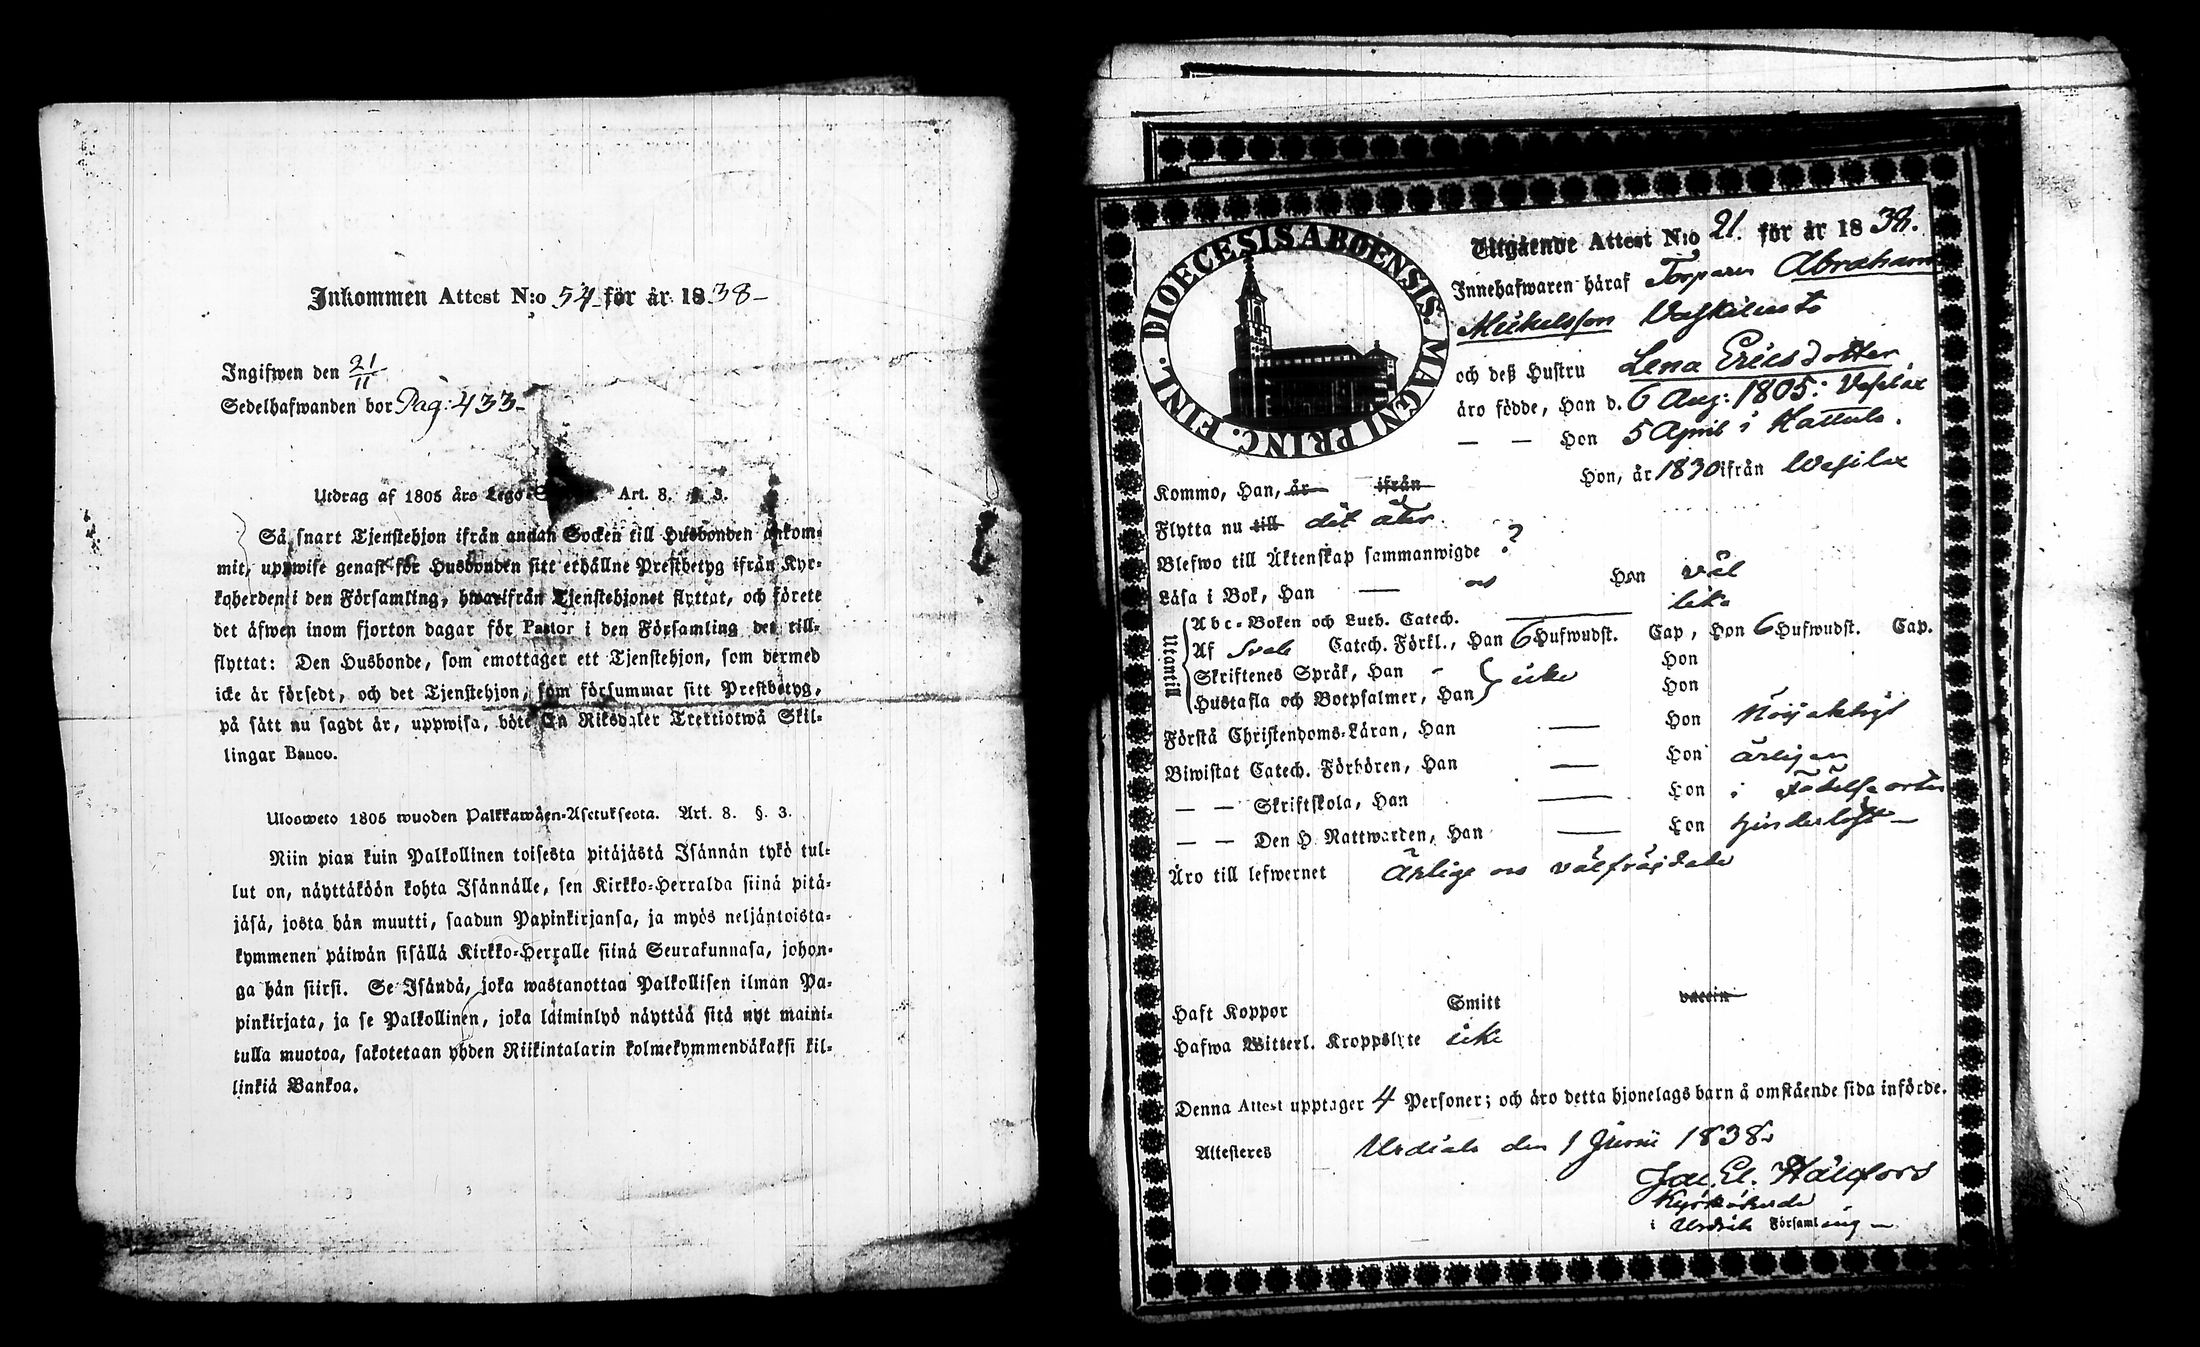 Inkommen Attest N:o 54 för år 1838
Ingifwen den 21/11
Sedelhafwanden bor Pag: 433
Utdrag af 1805 års Lego Art. 8. § 3.
Så snart Tjenstehjon ifrån annan Socken till Husbonden ankom-
mit, uppwise genast för Husbonden sitt erhållne Prestbetyg ifrån Kyr-
koherden i den Församling, hwarifrån Tjenstehjonet flyttat, och förete
det äfwen inom fjorton dagar för Pastor i den Församling det till-
flyttat: Den Husbonde, som emottager ett Tjenstehjon, som dermed
icke är försedt, och det Tjenstehjon, som försummar sitt Prestbetyg,
på sätt nu sagdt är, uppwisa, böte En Riksdaler Trettiotwå Skil-
lingar Banco.
Ulosweto 1805 wuoden Palkkawäen-Asetuksesta. Art. 8. §. 3.
Niin pian kuin Palkollinen toisesta pitäjästä Isännän tykö tul-
lut on, näyttäköön kohta Isännälle, sen Kirkko-Herralda siinä pitä-
jäsä, josta hän muutti, saadun Papinkirjansa, ja myös neljäntoista-
kymmenen päiwän sisällä Kirkko-Herralle siinä Seurakunnasa, johon-
ga hän siirsi. Se Isändä, joka wastanottaa Palkollisen ilman Pa-
pinkirjata, ja se Palkollinen, joka laiminlyö näyttää sitä nyt maini-
tulla muotoa, sakotetaan yhden Riikintalarin kolmekymmendäkaksi kil-
linkiä Bankoa.
DIOECESIS ABOENSIS. MAGNI PRINC. FINL.
Utgående Attest N:o 21. för år 1838.
Innehafwaren häraf Torparen Abraham
Michelsson
och deß Hustru Lena Ericsdotter
äro födde, Han d. 6 Aug: 1805: Vesilax
— — Hon 5 April i Hattula.
Kommo, Han, år ifrån Hon, år 1830 ifrån Wesilax
Flytta nu till dit åter
Blefwo till Äktenskap sammanwigde ?
Läsa i Bok, Han — Hon väl
Utantill
Abc-Boken och Luth. Catech. — lika
Af Sveb. Catech. Förkl., Han 6 Hufwudst. Cap, Hon 6 Hufwudst. Cap.
Skriftenes Språk, Han - Hon
Hustafla och Botpsalmer, Han icke Hon
Förstå Christendoms-Läran, Han — Hon Nöjaktigt
Biwistat Catech. Förhören, Han — Hon årligen
— — Skriftskola, Han — Hon i födelseorten
— — Den H. Nattwarden, Han — Hon hinderlöst —
Äro till lefwernet Ärlige och välfräjdade
Haft Koppor Smitt vaccin
Hafwa Witterl. Kroppslyte icke
Denna Attest upptager 4 Personer; och äro detta hjonelags barn å omstående sida införde.
Attesteres Urdiala den 1 Junii 1838.
Kyrkoherde
i Urdiala Församling —